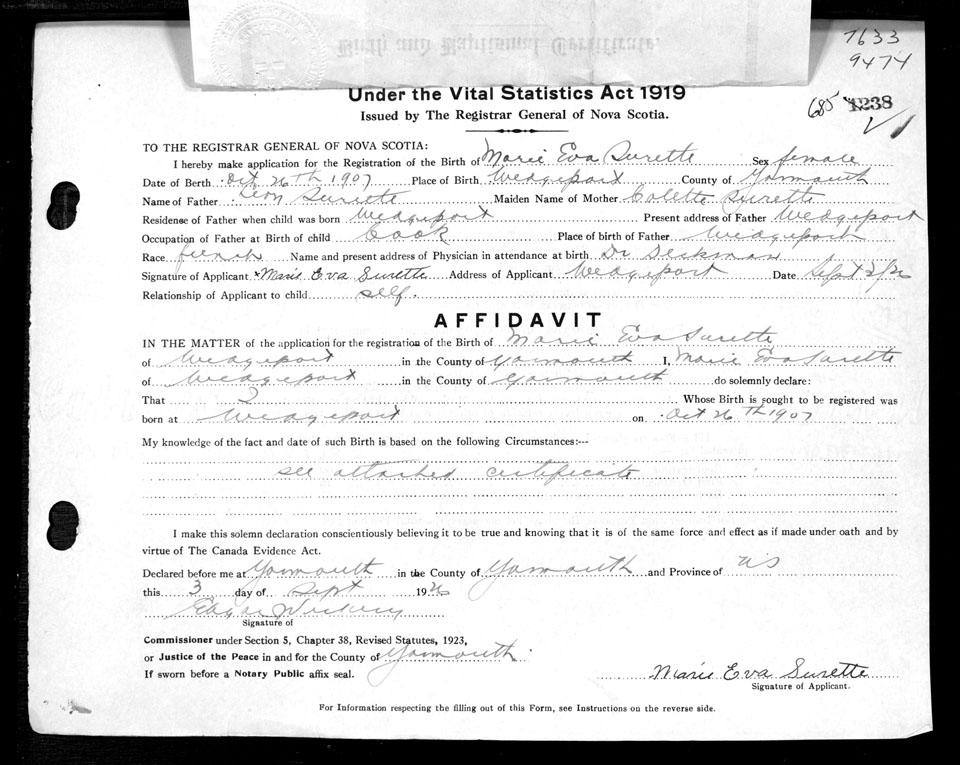 Birth and Baptismal Certificate.
7633
9474
685 1238
Under the Vital Statistics Act 1919
Issued by The Registrar General of Nova Scotia.
TO THE REGISTRAR GENERAL OF NOVA SCOTIA:
I hereby make application for the Registration of the Birth of Marie Eva Surette Sex female
Date of Berth Oct 26th 1907 Place of Birth Wedgeport County of Yarmouth
Name of Father Leon Surette Maiden Name of Mother Colette Surette
Residense of Father when child was born Wedgeport Present address of Father Wedgeport
Occupation of Father at Birth of child Cook Place of birth of Father Wedgeport
Race french Name and present address of Physician in attendance at birth Dr
Signature of Applicant Marie Eva Surette Address of Applicant Wedgeport Date Sept 2/26
Relationship of Applicant to child self.
AFFIDAVIT
IN THE MATTER of the application for the registration of the Birth of Marie Eva Surette
of Wedgeport in the County of Yarmouth I, Marie Eva Surette
of Wedgeport in the County of Yarmouth do solemnly declare:
That I Whose Birth is sought to be registered was
born at Wedgeport on Oct 26th 1907
My knowledge of the fact and date of such Birth is based on the following Circumstances:—
see attached certificate
I make this solemn declaration conscientiously believing it to be true and knowing that it is of the same force and effect as if made under oath and by
virtue of The Canada Evidence Act.
Declared before me at Yarmouth in the County of Yarmouth and Province of NS
this 3 day of Sept 1926
Signature of
Commissioner under Section 5, Chapter 38, Revised Statutes, 1923,
or Justice of the Peace in and for the County of Yarmouth
If sworn before a Notary Public affix seal.
Marie Eva Surette
Signature of Applicant.
For Information respecting the filling out of this Form, see Instructions on the reverse side.